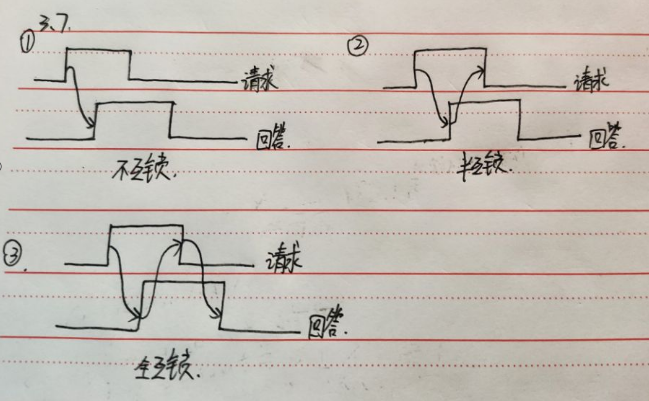 3.7.
①
请求
回答.
不互锁.
②
请求
回答.
半互锁.
③.
请求
回答.
全互锁.